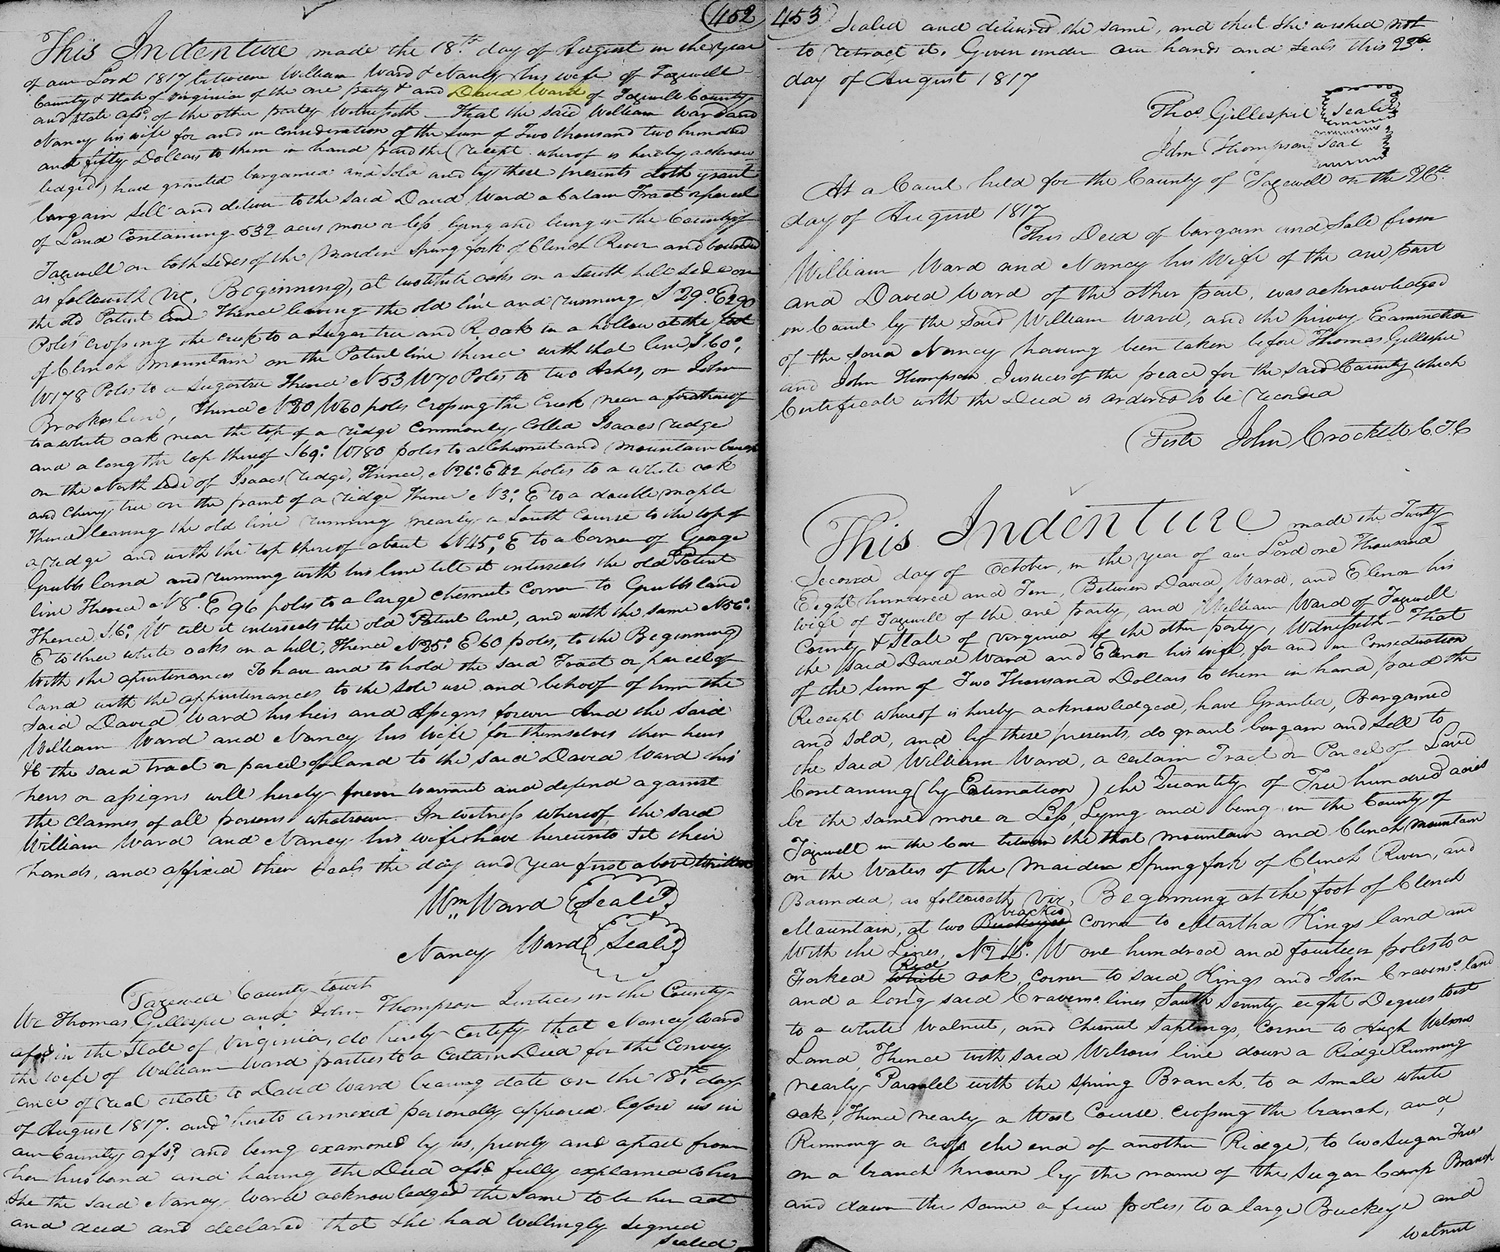 452
This Indenture made the 18th day of August in the year
of our Lord 1817 between William Ward & Nancy his wife of Tazewell
County & State of Virginia of the one party & and David Ward of Tazewell County
and state afsd. of the other party Witnesseth That the said William Ward and
Nancy his wife for and in consideration of the sum of Two thousand two hundred
and fifty Dollars to them in hand paid the receipt whereof is hereby acknow
ledged, had granted bargained and sold and by these presents doth grant
bargain Sell and deliver to the said David Ward a Certain Tract or parcel
of Land Containing 532 acres more or less lying and being in the County of
Tazewell on both sides of the Maiden Spring fork of Clinch River and bounded
as followeth Viz, Beginning, at two white oaks on a South hill side on
the old Patent line Thence leaving the old line and running S 29° E 290
Poles crossing the creek to a Sugartree and R. oak in a hollow at the foot
of Clinch Mountain on the Patent line thence with that line S 60°,
W178 Poles to a Sugartree Thence N53 W70 Poles to two Ashes, on John
Brooks line, Thence N80 W60 poles crossing the Creek near a
to a white oak near the top of a ridge commonly Called Isaacs ridge
and along the top thereof S69° W180 poles to a Chesnut and mountain
on the North side of Isaacs ridge, Thence, N26° E42 poles to a white oak
and Cherry tree on the point of a ridge Thence N3° E to a double maple
Thence leaving the old line running nearly a South Course to the top of
a ridge and with the top thereof about N45° E to a Corner of George
Grubbs land and running with his line till it intersects the old Patent
line Thence N8° E96 poles to a large chesnut Corner to Grubbs land
Thence, S6° W till it intersects the old Patent line, and with the same N56°
E to three white oaks on a hill, Thence N35° E60 poles, to the Beginning
with the apurtenances To have and to hold the said Tract or parcel of
land with the appurtenances to the sole use and behoof of him the
said David Ward his heirs and assigns forever And the said
William Ward and Nancy his wife for themselves their heirs
&c the said tract or parcel of land to the said David Ward his
heirs or assigns will hereby forever warrant and defend against
the Claimes of all persons whatsoever. In witness whereof, the said
William Ward and Nancy his wife have hereunto set their
hands, and affixed their Seals the day and year first above written
Wm. Ward (Seal)
Nancy Ward (Seal)
Tazewell County Court
We Thomas Gillespie and John Thompson Justices in the County
afsd in the State of Virginia, do hereby certify that Nancy Ward
the wife of William Ward parties to a Certain Deed for the Convey
ance of real estate to David Ward bearing date on the 18th day
of August 1817. and hereto annexed personally appeared before us in
our County afsd, and being examoned by us, privily and apart from
her husband and having the Deed afsd fully explained to her
She the said Nancy Ward acknowledged the same to be her act
and deed and declared that She had Willingly Signed
Sealed
453
Sealed and delivered the same, and that She wished not
to retract it. Given under our hands and seals this 23d
day of August 1817
Thos Gillespie Seal
John Thompson Seal
At a Court held for the County of Tazewell on the 26th
day of August 1817
This Deed of bargain and Sale from
William Ward and Nancy his Wife of the one part
and David Ward of the other part, was acknowledged
in Court by the said William Ward, and the privy Examination
of the said Nancy having been taken before Thomas Gillespie
and John Thompson Justices of the peace for the said County which
Certificate with the Deed is ordered to be recorded
Teste John Crockett C T C
This Indenture made the Twenty
Second day of October, in the year of our Lord one Thousand
Eight hundred and Ten, Between David Ward, and Elenor his
wife of Tazewell of the one party, and William Ward of Tazewell
County & State of Virginia of the other party, Witnesseth That
the said David Ward and Elenor his wife, for and in Consideration
of the sum of Two Thousand Dollars to them in hand, paid the
Receipt whereof is hereby acknowledged, have Granted, Bargained
and Sold, and by these presents do grant bargain and Sell to
the said William Ward, a certain Tract or Parcel of Land
Containing (by Estimation) the Quantity of Five hundred acres
be the same more or Less, Lying and being in the County of
Tazewell in the Cove between the short mountain and Clinch mountain
on the Waters of the Maiden Spring fork of Clinch River, and
Bounded, as followeth, Viz, Beginning at the foot of Clinch
Mountain, at two Buckeyes Corner to Martha Kings land and
With the Lines, N24° W one hundred and fourteen poles to a
Forked White Red oak, corner to said Kings and John Cravens land
and along said Cravens lines South Seventy eight Degrees West
to a white Walnut, and Chesnut Saplings, Corner to Hugh Wilsons
Land, Thence with said Wilsons line down a Ridge Running
nearly Paralel with the Spring Branch, to a small white
oak, Thence nearly a West Course crossing the branch, and,
Running a cross the end of another Ridge, to two Sugar Trees
on a branch known by the name of the Sugar Camp Branch
and down the same a few poles, to a large Buckeye and
Walnut